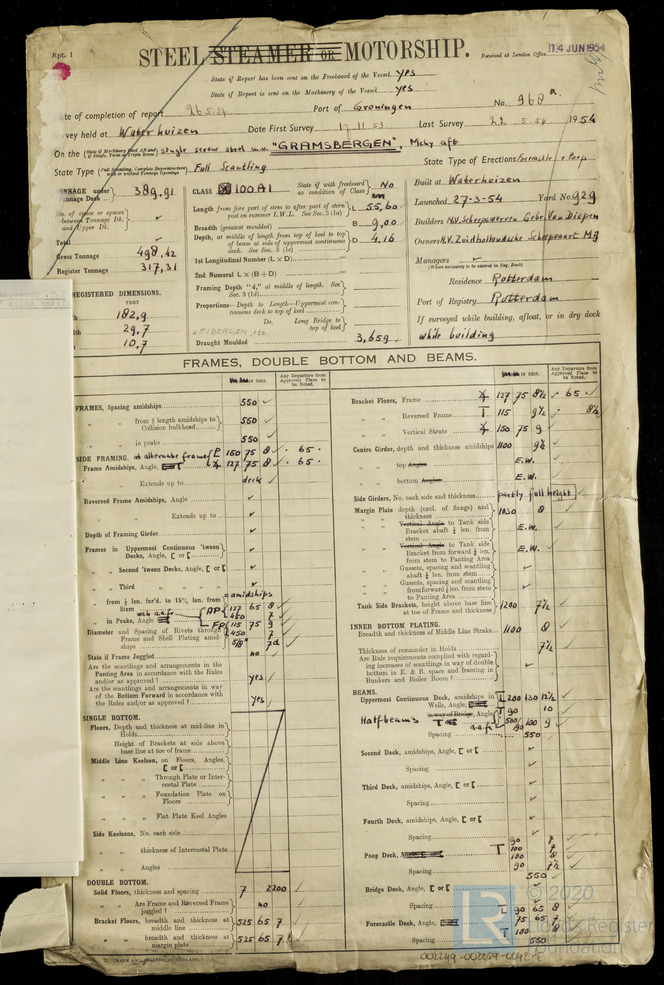 Rpt. 1
STEEL STEAMER OR MOTORSHIP.
Received at London Office 14 JUN 1954
State if Report has been sent on the Freeboard of the Vessel yes
State if Report is sent on the Machinery of the Vessel yes
ate of completion of report 26.5.54 Port of Groningen No. 968a.
vey held at Waterhuizen Date First Survey 17.11.53 Last Survey 22.5.54 1954
On the single screw steel m.v. "GRAMSBERGEN", Mchy aft
State Type Full Scantling
State Type of Erections Forecastle + Poop
TONNAGE under Tonnage Deck 389,91
CLASS 100A1
State if with freeboard as condition of Class No
Built at Waterhuizen
Launched 27-3-54 Yard No. 929
Length from fore part of stem to after part of stern post on summer L.W.L. See Sec. 3 (1a) L 55,60
Breadth (greatest moulded) B 9,00
Builders N.V. Scheepswerven Gebr. Van Diepen
Depth, at middle of length from top of keel to top of beam at side of uppermost continuous deck. See Sec. 3 (1c) D 4,16
Owners N.V. Zuidhollandsche Scheepvaart Mij
Total
Gross Tonnage 498,42
Register Tonnage 317,31
1st Longitudinal Number (L × D)
2nd Numeral L × (B + D)
Managers
Residence Rotterdam
Framing Depth "d," at middle of length. See Sec. 3 (1d)
Port of Registry Rotterdam
REGISTERED DIMENSIONS.
FEET
182,9
29,7
10,7
Proportions—Depth to Length—Uppermost continuous deck to top of keel
Do. Long Bridge to top of keel
Draught Moulded 3,659
If surveyed while building, afloat, or in dry dock
while building
FRAMES, DOUBLE BOTTOM AND BEAMS.
Any Departure from Approved Plans to be Noted.
FRAMES, Spacing amidships 550
" " from ⅕ length amidships to Collision bulkhead 550
" " in peaks 550
SIDE FRAMING. at alternate frames P 150 75 8 · 65 ·
Frame Amidships, Angle 127 75 8 · 65 ·
" " Extends up to deck
Reversed Frame Amidships, Angle
" " Extends up to
Depth of Framing Girder
Frames in Uppermost Continuous 'tween Decks, Angle, [ or [
" " Second 'tween Decks, Angle, [ or [
" " Third " "
" " from ⅕ len. for'd. to 15% len. from Stem = amidships
" " in Peaks, Angle web a.a.fr. AP 127 65 8
460 7
FP 115 75 9
450 7
Diameter and Spacing of Rivets through Frame and Shell Plating amidships 5/8" 7d
State if Frame Joggled no
Are the scantlings and arrangements in the Panting Area in accordance with the Rules and/or as approved ? yes
Are the scantlings and arrangements in way of the Bottom Forward in accordance with the Rules and/or as approved ? yes
SINGLE BOTTOM.
Floors, Depth and thickness at mid-line in Holds
Height of Brackets at side above base line at toe of frame
Middle Line Keelson, on Floors, Angles, [ or [
" " Through Plate or Intercostal Plate
" " Foundation Plate on Floors
" " Flat Plate Keel Angles
Side Keelsons, No. each side
" " thickness of Intercostal Plate
" " Angles
DOUBLE BOTTOM.
Solid Floors, thickness and spacing 7 2200
" " Are Frame and Reversed Frame joggled ? no
Bracket Floors, breadth and thickness at middle line 525 65 7
" " breadth and thickness at margin plate 525 65 7
Bracket Floors, Frame 127 75 8½ · 65 ·
" " Reversed Frame 115 9½ 8½
" " Vertical Struts 150 75 9
Centre Girder, depth and thickness amidships 1100 9½
" " top Angles E.W.
" " bottom Angles E.W.
Side Girders, No. each side and thickness partly full height
Margin Plate depth (excl. of flange) and thickness 1030 8
" " Vertical Angle to Tank side Bracket abaft ⅕ len. from stem E.W.
" " Vertical Angle to Tank side Bracket from forward ⅕ len. from stem to Panting Area E.W.
" " Gussets, spacing and scantling abaft ⅕ len. from stem
" " Gussets, spacing and scantling from forward ⅕ len. from stem to Panting Area
Tank Side Brackets, height above base line at toe of Frame and thickness 1200 7½
INNER BOTTOM PLATING.
Breadth and thickness of Middle Line Strake 1100 8
Thickness of remainder in Holds 7½
Are Rule requirements complied with regarding increases of scantlings in way of double bottom in E. & B. space and framing in Bunkers and Boiler Room ?
BEAMS.
Uppermost Continuous Deck, amidships in Wells, Angle 200 130 12½
" " in way of Bridge, Angle 90 10
Halfbeams a.a.fr. 500 100 9
Spacing 550
Second Deck, amidships, Angle, [ or [
Spacing
Third Deck, amidships, Angle, [ or [
Spacing
Fourth Deck, amidships, Angle, [ or [
Spacing
Poop Deck 90 7
100 7
100 8
90 7½
Spacing 550
Bridge Deck, Angle, [ or [
Spacing
Forecastle Deck, Angle 90 65 8
75 65 7
100 8
Spacing 550
© 2020
Lloyd's Register
Foundation
002249-002259-0042